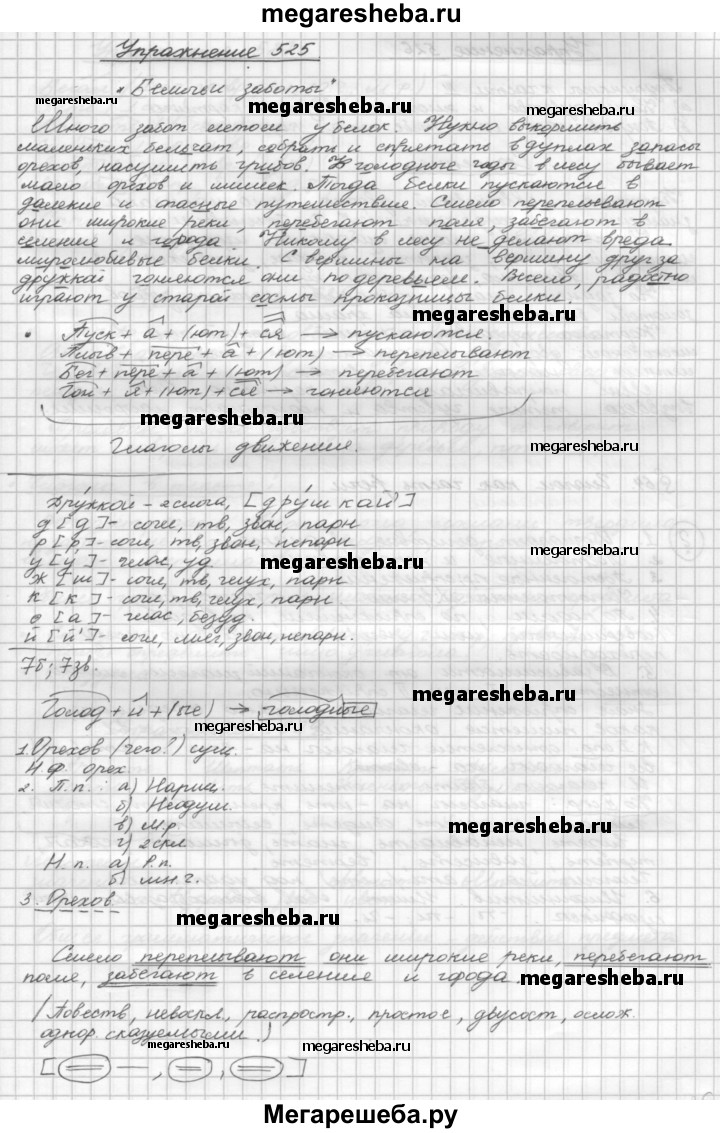 megaresheba.ru
Упражнение 525
"Беличьи заботы"
megaresheba.ru
megaresheba.ru
megaresheba.ru
Много забот летом у белок. Нужно выкормить
маленьких бельчат, собрать и спрятать в дуплах запасы
орехов, насушить грибов. В голодные годы в лесу бывает
мало орехов и шишек. Тогда белки пускаются в
далёкие и опасные путешествие. Смело переплывают
они широкие реки, перебегают поля, забегают в
селение и города. Никому в лесу не делают вреда
миролюбивые белки. С вершины на вершину друг за
дружкой гоняются они по деревьям. Весело, радостно
играют у старой сосны проказницы белки.
megaresheba.ru
Пуск + а + (ют) + ся → пускаются.
Плыв + пере + а + (ют) → переплывают
Бег + пере + а + (ют) → перебегают
Гон + я + (ют) + ся → гоняются
megaresheba.ru
megaresheba.ru
Глаголы движения.
Дружкой - 2 слога, [друшкай']
д [д] - согл, тв, звон, парн
р [р] - согл, тв, звон, непарн
megaresheba.ru
у [у] - глас, уд.
megaresheba.ru
ж [ш] - согл, тв, глух, парн
к [к] - согл, тв, глух, парн
о [а] - глас, безуд.
й [й'] - согл, мягк, звон, непарн.
7б; 7зв.
megaresheba.ru
Голод + н + (ые) → голодные
megaresheba.ru
1. Орехов (чего?) сущ.
Н.ф. орех
2. П.п.: а) Нариц.
б) Неодуш.
в) м.р
г) 2 скл
megaresheba.ru
Н.п. а) Р.п.
б) мн.ч.
3. Орехов.
megaresheba.ru
Смело переплывают они широкие реки, перебегают
поля, забегают в селение и города.
megaresheba.ru
(Повеств, невоскл, распростр., простое, двусост, ослож.
однор. сказуемыми.)
megaresheba.ru
megaresheba.ru
Мегарешеба.ру